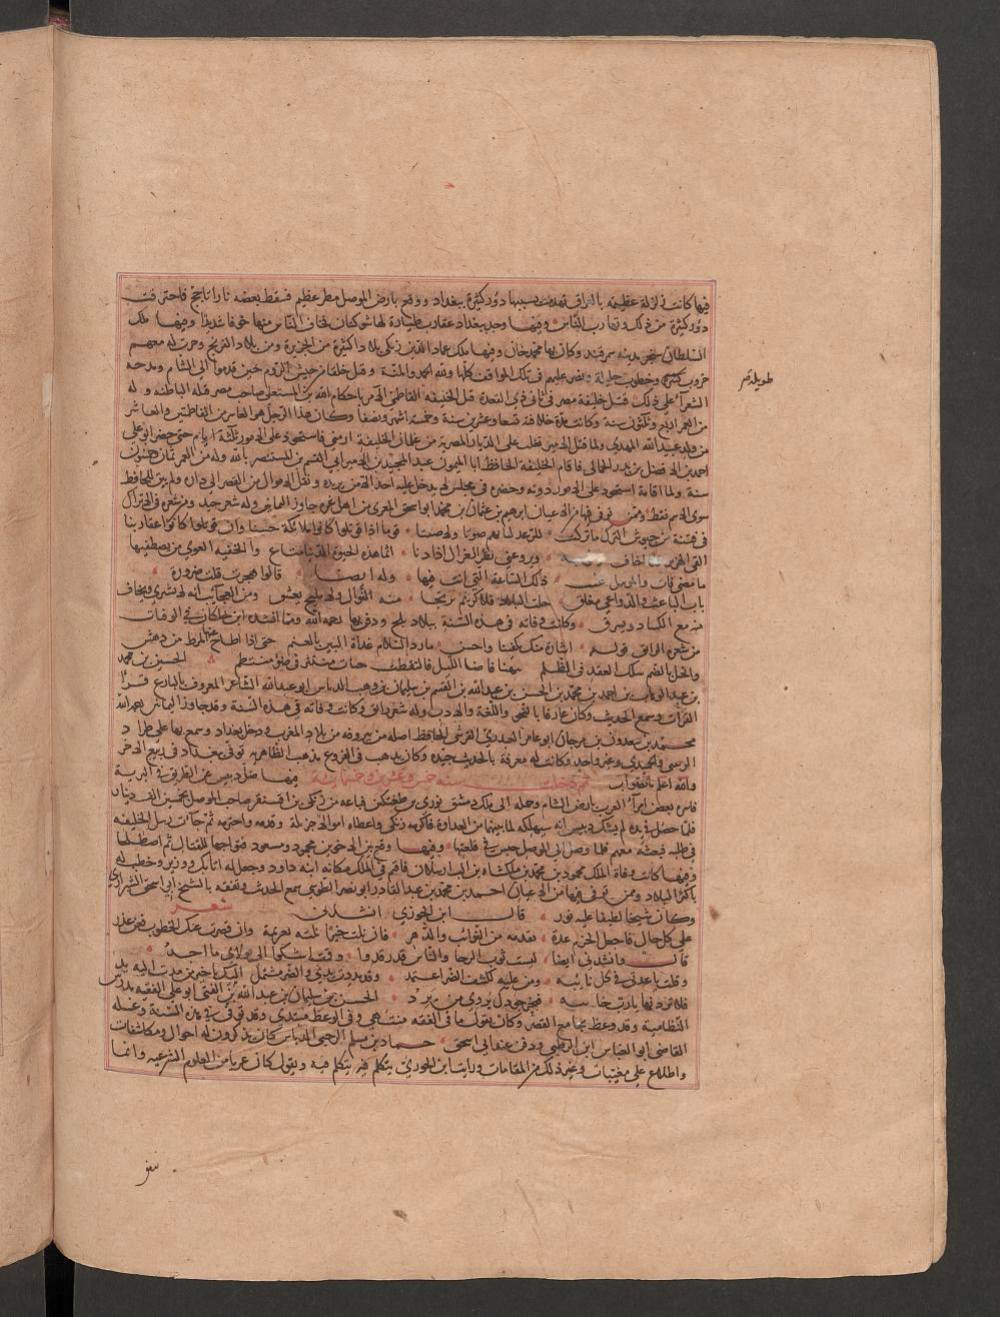 فيها كانت زلزلة عظيمة بالعراق تهدمت بسببها دور كثيرة ببغداد ووقع بارض الموصل مطر عظيم فسقط بعضه نارا تاجج فاحترقت
دور كثيرة من ذلك وتهارب الناس وفيها وجد ببغداد عقارب طيارة لها شوكتان فخاف الناس منها خوفا شديدا وفيها ملك
السلطان سنجر مدينة سمرقند وكان بها محمد خان وفيها ملك عماد الدين زنكي بلادا كثيرة من الجزيرة ومن بلاد الفرنج وجرت له معهم
حروب كثيرة وخطوب جليلة ونصر عليهم في تلك المواقف كلها ولله الحمد والمنة وقتل خلقا من جيش الروم حين قدموا الى الشام ومدحه
الشعرآ على ذلك قتل خليفة مصر في ثاني ذي القعدة قتل الخليفة الفاطمي الآمر باحكام الله بن المستعلي صاحب مصر قتله الباطنه وله
من العمر اربع وثلثون سنة وكانت مدة خلافته تسعا وعشرين سنة وخمسة اشهر ونصفا وكان هذا الرجل هو العاشر من الفاطميين والعاشر
من ولد عبيد الله المهدي ولما قتل الآمر تغلب على الديار المصرية من غلمان الخليفة ارمني فاستحوذ على الامور ثلثة ايام حتى حضر ابو علي
احمد بن الافضل بن بدر الجمالي فاقام الخليفة الحافظ ابا الميمون عبد المجيد بن الامير ابي القسم بن المستنصر بالله وله من العمر ثمان وخمسون
سنة ولما اقامه استحوذ على الامور دونه وحصره في مجلس لا يدخل عليه احد الا من يريده ونقل الاموال من القصر الى داره ولم يبق للحافظ
سوى الاسم فقط وممن توفي فيها من الاعيان ابرهيم بن عثمان بن محمد ابو اسحق الغزي من اهل غزة جاوز الثمانين وله شعر جيد ومن شعره في الاتراك
في فتية من جيوش الترك ما تركت للرعد كباتهم صوتا ولا صيتا قوم اذا قوبلوا كانوا ملائكة حسنا وان قوتلوا كانوا عفاريتا
ويروعني نظر الغزال اذا رنا انما هذه الحيوة الدنيا متاع والسفيه الغوي من يصطفيها
ما مضى فات والمؤمل غيب ذلك الساعة التي انت فيها وله ايضا قالوا هجرت قلت ضرورة
باب البواعث والدواعي مغلق خلت البلاد فلا كريم يرتجى منه النوال ولا مليح يعشق ومن العجائب انه لا يشترى ويخان
فيه مع الكساد ويسرق وكانت وفاته في هذه السنة ببلاد بلخ ودفن بها رحمه الله ومما انشده ابن خلكان في الوفيات
من شعره الرائق قوله اشارة منك تكفينا واحسن ما رد السلام غداة البين بالعنم حتى اذا طاح عنها المرط من دهش
وانحل بالضم سلك العقد في الظلم تبسمت فاضا الليل فالتقطت حبات منتثر في ضوء منتظم الحسين بن محمد
بن عبد الوهاب بن احمد بن محمد بن الحسين بن عبد الله بن القسم بن سليمان بن وهب الدباس ابو عبد الله الشاعر المعروف بالبارع قرا
القراات وسمع الحديث وكان عارفا بالنحو واللغة والادب وله شعر رائق وكانت وفاته في هذه السنة وقد جاوز الثمانين رحمه الله
محمد بن سعدون بن مرجان ابو عامر العبدري القرشي الحافظ اصله من ميورقه من بلاد المغرب ودخل بغداد وسمع بها على طراد
الزينبي والحميدي وغير واحد وكانت له معرفة بالحديث جيدة وكان يذهب في الفروع مذهب الظاهرين توفي ببغداد في ربيع الاخر
والله اعلم بالصواب ثم دخلت سنة خمس وعشرين وخمسمائة فيها ضل دبيس عن الطريق في البرية
فاسره بعض امرآ العرب بارض الشام وحمله الى ملك دمشق بوري بن طغتكين فباعه من زنكي بن اقسنقر صاحب الموصل بخمسين الف دينار
فلما حصل في يده لم يشك دبيس انه سيهلكه لما بينهما من العداوة فاكرمه زنكي واعطاه اموالا جزيلة وقدمه واحترمه ثم جآت رسل الخليفة
في طلبه فبعثه معهم فلما وصل الى الموصل حبس في قلعتها وفيها وقع بين الاخوين محمود ومسعود فتواجها للقتال ثم اصطلحا
وفيها كانت وفاة الملك محمود بن محمد بن ملكشاه بن الب ارسلان فاقيم في الملك مكانه ابنه داود وجعل له اتابك ووزير وخطب له
باكثر البلاد وممن توفي فيها من الاعيان احمد بن محمد بن عبد القادر ابو نصر الطوسي سمع الحديث وتفقه بالشيخ ابي اسحق الشيرازي
وكان شيخا لطيفا عليه نور قال ابن الجوزي انشدني شعر
على كل حال فاجعل الحزم عدة تقدمه من النوائب والدهر فان نلت خيرا نلته بعزيمة وان قصرت عنك الخطوب فعن عذر
قال وانشدني ايضا لبست ثوب الرجا والناس قد رقدوا وقمت اشكو الى مولاي ما اجد
وقلت يا عدتي في كل نائبة ومن عليه لكشف الضر اعتمد وقد مددت يدي والضر مشتمل اليك يا خير من مدت اليه يد
فلا تردنها يا رب خائبة فبحر جودك يروي من يرد الحسن بن سليمان بن عبد الله بن الفتى ابو علي الفقيه مدرس
النظامية وقد وعظ بجامع القصر وكان يقول ما في الفقه منتهي وفي الوعظ مبتدي وقد توفي في هذه السنة وغسله
القاضي ابو العباس ابن الرطبي ودفن عند ابي اسحق حماد بن مسلم الرحبي الدباس كان يذكرون له احوال ومكاشفات
واطلاع على مغيبات وغير ذلك من المقامات ورايت ابن الجوزي يتكلم فيه ويقول كان عريا من العلوم الشرعيه وانما